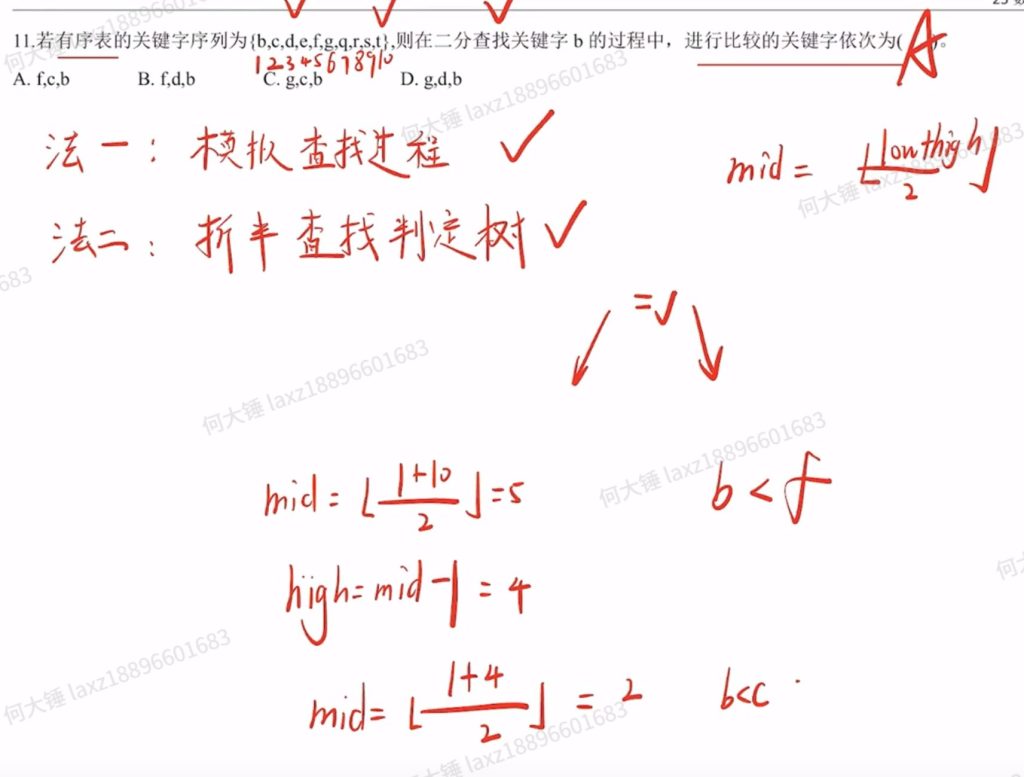 11.若有序表的关键字序列为{b,c,d,e,f,g,q,r,s,t},则在二分查找关键字 b 的过程中，进行比较的关键字依次为( A )。
1 2 3 4 5 6 7 8 9 10
A. f,c,b B. f,d,b C. g,c,b D. g,d,b
法一：模拟查找过程 ✓
mid = ⌊(low+high)/2⌋
法二：折半查找判定树 ✓
=✓
mid = ⌊(1+10)/2⌋=5 b<f
high=mid-1=4
mid=⌊(1+4)/2⌋=2 b<c
何大锤 laxz18896601683
何大锤 laxz18896601683
何大锤 laxz18896601683
何大锤 laxz18896601683
何大锤 laxz18896601683
何大锤 laxz18896601683